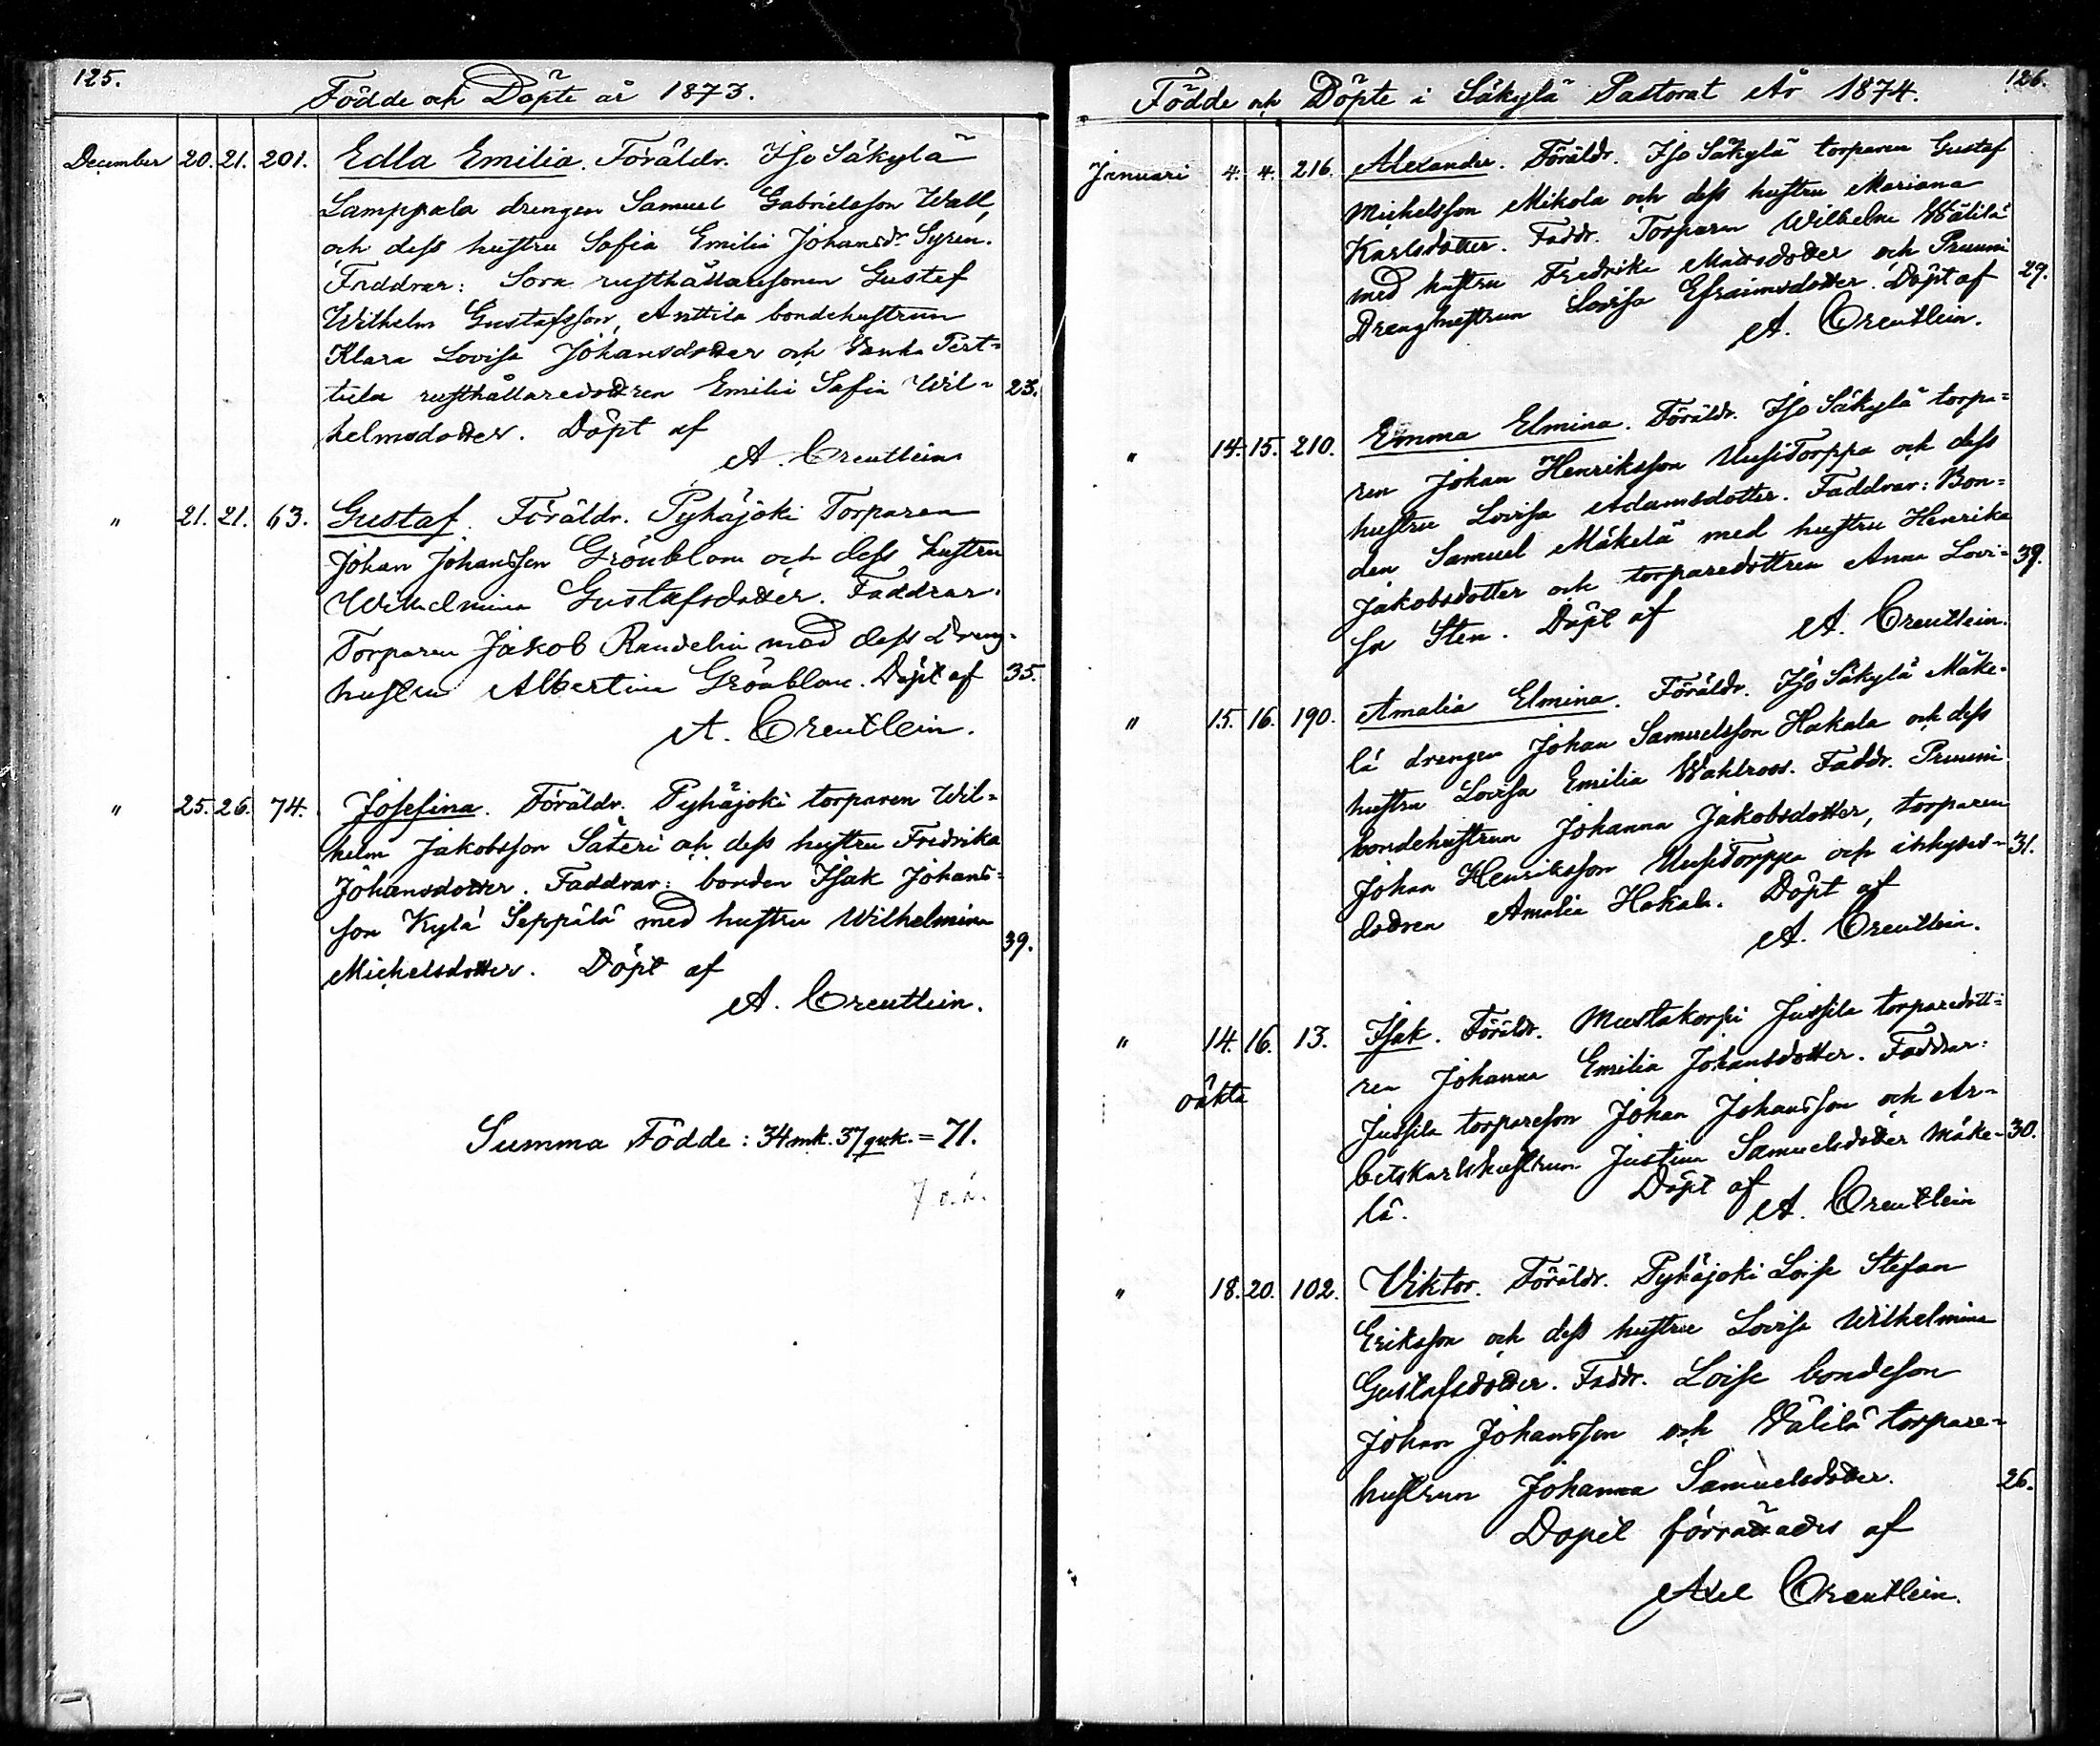 125.
Födde och Döpte år 1873.
December 20. 21. 201. Edla Emilia. Föräldr. Iso Säkylä
Lamppala drengen Samuel Gabrielsson Wall,
och dess hustru Sofia Emilia Johansdr Syren.
Faddrar: Sora rusthållaresonen Gustaf
Wilhelm Gustafsson, Anttila bondehustrun
Klara Lovisa Johansdotter och Vanha Pert=
tila rusthållaredottren Emilia Sofia Wil= 23.
helmsdotter. Döpt af
A. Creutlein
" 21. 21. 63. Gustaf. Föräldr. Pyhäjoki Torparen
Johan Johansson Grönblom och dess hustru
Wilhelmina Gustafsdotter. Faddrar.
Torparen Jakob Randelin med dess Dreng=
hustru Albertina Grönblom. Döpt af 35.
A. Creutlein.
" 25. 26. 74. Josefina. Föräldr. Pyhäjoki torparen Wil=
helm Jakobsson Säteri och dess hustru Fredrika
Johansdotter. Faddrar: bonden Isak Johans=
son Kylä Seppälä med hustru Wilhelmina
Michelsdotter. Döpt af 39.
A. Creutlein.
Summa Födde: 34 mk. 37 qvk. = 71.
126.
Födde och Döpte i Säkylä Pastorat År 1874.
Januari 4. 4. 216. Alexander. Föräldr. Iso Säkylä torparen Gustaf
Michelsson Mikola och dess hustru Mariana
Karlsdotter. Faddr. Torparen Wilhelm Wälilä
med hustru Fredrika Matsdotter och Pruuni 29.
Drenghustrun Lovisa Efraimsdotter. Döpt af
A. Creutlein.
" 14. 15. 210. Emma Elmina. Föräldr. Iso Säkylä torpa=
ren Johan Henriksson UusiTorppa och dess
hustru Lovisa Adamsdotter. Faddrar: Bon=
den Samuel Mäkelä med hustru Henrika
Jakobsdotter och torparedottren Anna Lovi= 39.
sa Sten. Döpt af
A. Creutlein.
" 15. 16. 190. Amalia Elmina. Föräldr. Iso Säkylä Mäke=
lä drengen Johan Samuelsson Hakala och dess
hustru Lovisa Emilia Wahlroos. Faddr. Pruuni
bondehustrun Johanna Jakobsdotter, torparen
Johan Henriksson UusiTorppa och inhyses= 31.
dottren Amalia Hakala. Döpt af
A. Creutlein.
" 14. 16. 13. Isak. Föräldr. Mustakorpi Jussila torparedott=
oäkta ren Johanna Emilia Johansdotter. Faddrar:
Jussila torpareson Johan Johansson och Ar=
betskarlshustrun Justina Samuelsdotter Mäke= 30.
lä. Döpt af
A. Creutlein
" 18. 20. 102. Viktor. Föräldr. Pyhäjoki Loise Stefan
Eriksson och dess hustru Lovisa Wilhelmina
Gustafsdotter. Faddr. Loise bondeson
Johan Johansson och Välilä torpare=
hustrun Johanna Samuelsdotter. 26.
Dopet förrättades af
Axel Creutlein.